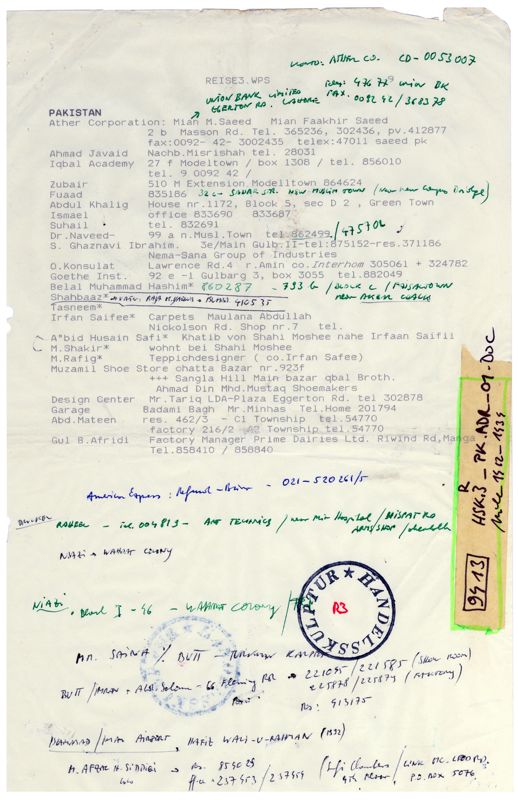 KONTO: ATHER CO. CD-0053007
REISE3.WPS
UNION BANK LIMITED
EGERTON RD. LAHORE FAX. 0092 42/368378
PAKISTAN
Ather Corporation: Mian M.Saeed Mian Faakhir Saeed
2 b Masson Rd. Tel. 365236, 302436, pv.412877
fax:0092- 42- 3002435 telex:47011 saeed pk
Ahmad Javaid Nachb.Misrishah tel. 28031
Iqbal Academy 27 f Modeltown / box 1308 / tel. 856010
tel. 9 0092 42 /
Zubair 510 M Extension Modelltown 864624
Fuaad 835186
Abdul Khalig House nr.1172, Block 5, sec D 2 , Green Town
Ismael office 833690 833687
Suhail tel. 832691
Dr.Naveed- 99 a n.Musl.Town tel.862499 /475706
S. Ghaznavi Ibrahim. 3e/Main Gulb.II-tel:875152-res.371186
Nema-Sana Group of Industries
O.Konsulat Lawrence Rd.4 r.Amin co.Interhom 305061 + 324782
Goethe Inst. 92 e -l Gulbarg 3, box 3055 tel.882049
Belal Muhammad Hashim* 860287 - 793 G / BLOCK C / FAISALTOWN
Shahbaaz*
Tasneem*
Irfan Saifee* Carpets Maulana Abdullah
Nickolson Rd. Shop nr.7 tel.
A*bid Husain Safi* Khatib von Shahi Moshee nahe Irfaan Saifii
M.Shakir* wohnt bei Shahi Moshee
M.Rafig* Teppichdesigner ( co.Irfan Safee)
Muzamil Shoe Store chatta Bazar nr.923f
+++ Sangla Hill Main bazar qbal Broth.
Ahmad Din Mhd.Mustaq Shoemakers
Design Center Mr.Tariq LDA-Plaza Eggerton Rd. tel 302878
Garage Badami Bagh Mr.Minhas Tel.Home 201794
Abd.Mateen res. 462/3 - C1 Township tel.54770
factory 216/2 A2 Township tel.54770
Gul B.Afridi Factory Manager Prime Dairies Ltd. Riwind Rd,Manga
Tel.858410 / 858840
American Express: Refund - 021-520261/5
RAHEEL - Tel. 004813 - ART TECHNICS / near Mir Hospital /
NIAZI + WAHDAT COLONY
NIAZI, Block I - 46 - WAHDAT COLONY /
HANDELSSKULPTUR
R3
MR. SAIRA % BUTT -
- 66 Fleming RD 221095/221585 (Show room)
225878/225879
Res: 413175
MUHAMMAD / AIRPORT, HAFIZ WALI-U-RAHMAN
Res. 859029
Office 237453/237459
P.O.BOX 5076
R
HSK3 - PK.ADR-01-DOC
9413